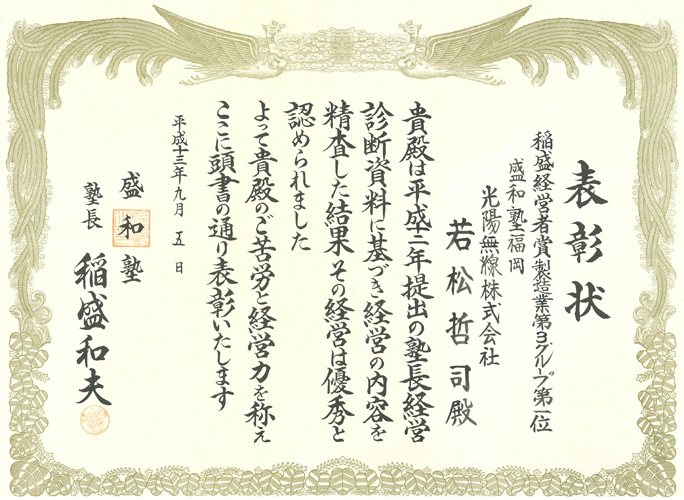 表彰状
稲盛経営者賞製造業第3グループ第一位
盛和塾福岡
光陽無線株式会社
若松哲司殿
貴殿は平成十二年提出の塾長経営
診断資料に基づき経営の内容を
精査した結果その経営は優秀と
認められました
よって貴殿のご苦労と経営力を称え
ここに頭書の通り表彰いたします
平成十三年九月五日
盛和塾
塾長 稲盛和夫